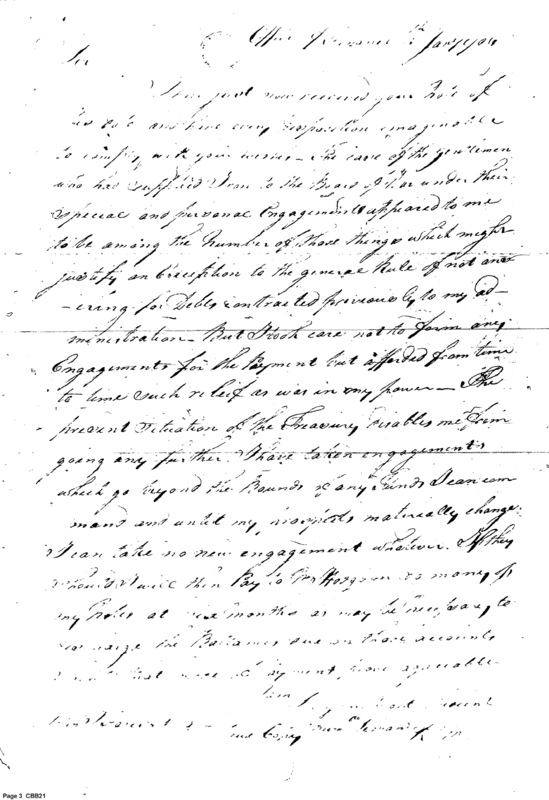 Office of Finance Jany
Sir
I have just now received your Note of
this date and have every disposition imaginable
to comply with your wishes - The case of the gentlemen
who has supplied Iron to the Board of War under their
special and personal Engagements appeared to me
to be among the number of those things which might
justify an Exception to the general Rule of not ans
-wering for Debts contracted previously to my ad-
ministration - But I took care not to form any
Engagements for the Payment but afforded from time
to time such relief as was in my power - The
present Situation of the Treasury disables me from
going any further. I have taken engagements
which go beyond the Bounds of any Funds I can com
mand and until my prospects materially change
I can take no new engagement whatever. If they
should I will then Pay to Mr Hodgson so many of
my Notes at six months as may be necessary to
the Balances due on those accounts
that mode of payment agreeable
him
obedient
servant
true Copy
Page 3 CBB21